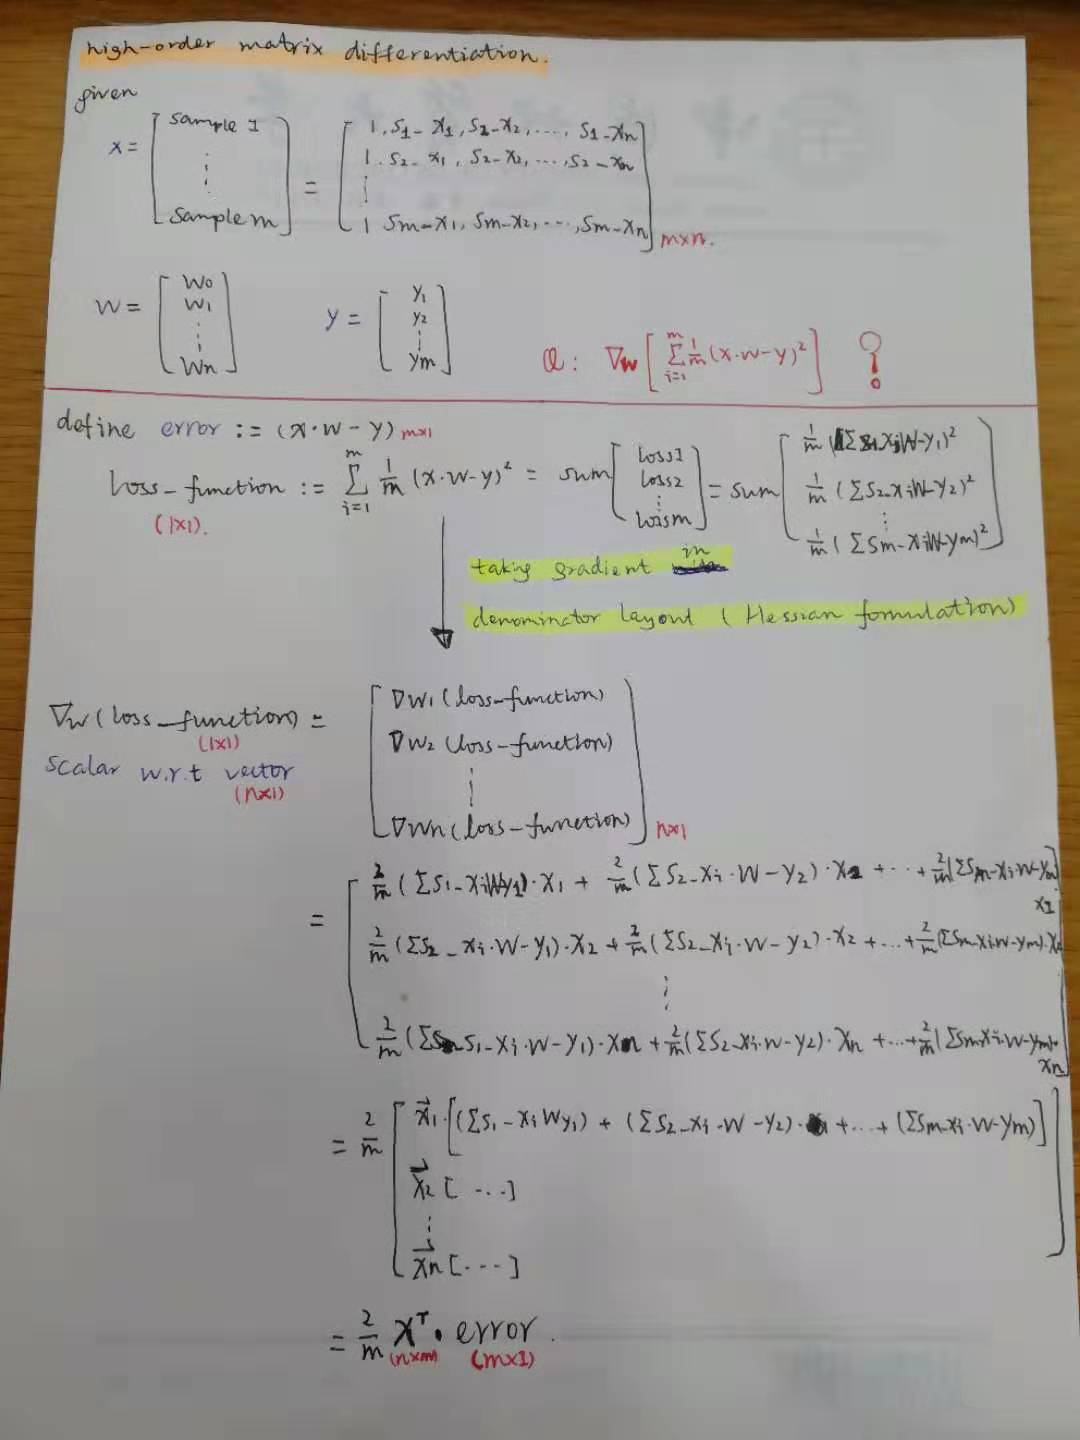 high-order matrix differentiation.
given
X = [ sample 1 ⋮ sample m ] = [ 1, S1_X1, S2_X2, ..., S1_Xn
1. S2_X1, S2_X2, ..., S2_Xn
⋮
1 Sm_X1, Sm_X2, ..., Sm_Xn ] m×n.
W = [ W0 W1 ⋮ Wn ] y = [ y1 y2 ⋮ ym ] Q: ∇w [ Σ_{i=1}^{m} 1/m (X·W-y)² ] ?
define error := (X·W-y) m×1
loss_function := Σ_{i=1}^{m} 1/m (X·W-y)² = sum [ loss1 loss2 ⋮ lossm ] = sum [ 1/m (Σ S1_XiW-y1)²
1/m (Σ S2_XiW-y2)²
⋮
1/m (Σ Sm_XiW-ym)² ]
(1×1).
taking gradient in
denominator layout (Hessian formulation)
∇w (loss_function) = [ ∇w1 (loss_function)
(1×1)
∇w2 (loss_function)
scalar w.r.t vector
(n×1)
⋮
∇wn (loss_function) ] n×1
= [ 2/m (Σ S1_XiWy1)·X1 + 2/m (Σ S2_Xi·W-y2)·X2 + ··· + 2/m (Σ Sm_Xi·W-ym)
X1
2/m (Σ S2_Xi·W-y1)·X2 + 2/m (Σ S2_Xi·W-y2)·X2 + ... + 2/m (Σ Sm_Xi·W-ym)·X2
⋮
2/m (Σ S1_Xi·W-y1)·Xn + 2/m (Σ S2_Xi·W-y2)·Xn + ... + 2/m (Σ Sm_Xi·W-ym)·
Xn ]
= 2/m [ X⃗1·[(Σ S1_XiWy1) + (Σ S2_Xi·W-y2)· + ... + (Σ Sm_Xi·W-ym)]
X⃗2 [ ... ]
⋮
X⃗n [ ... ] ]
= 2/m Xᵀ · error.
(n×m) (m×1)